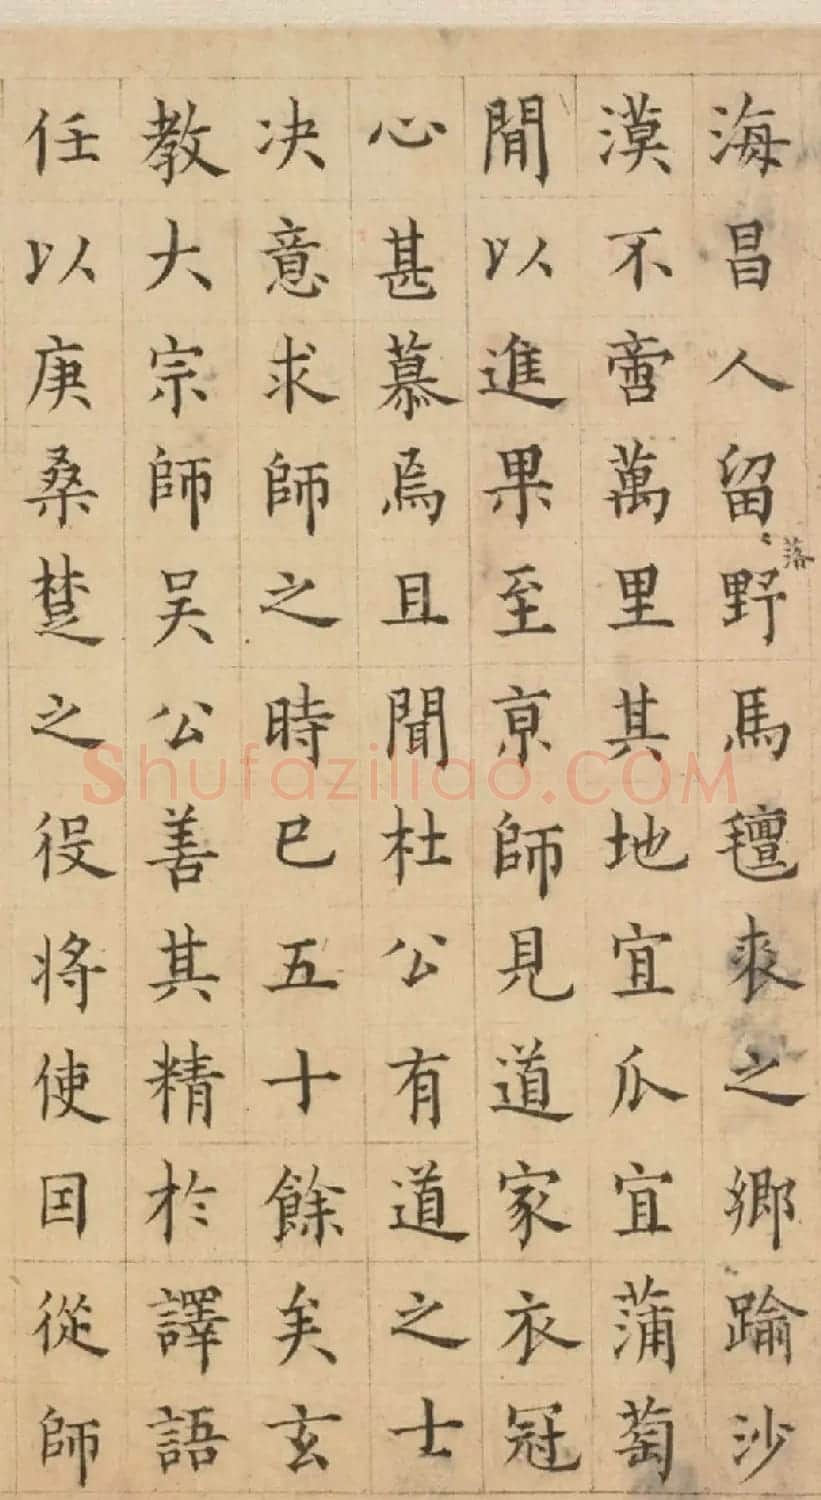 海昌人留野馬氊裘之鄉踰沙
落
漠不啻萬里其地宜瓜宜蒲萄
閒以進果至京師見道家衣冠
心甚慕焉且聞杜公有道之士
决意求師之時已五十餘矣玄
教大宗師吴公善其精於譯語
任以庚桑楚之役将使囯從師
Shufaziliao.COM